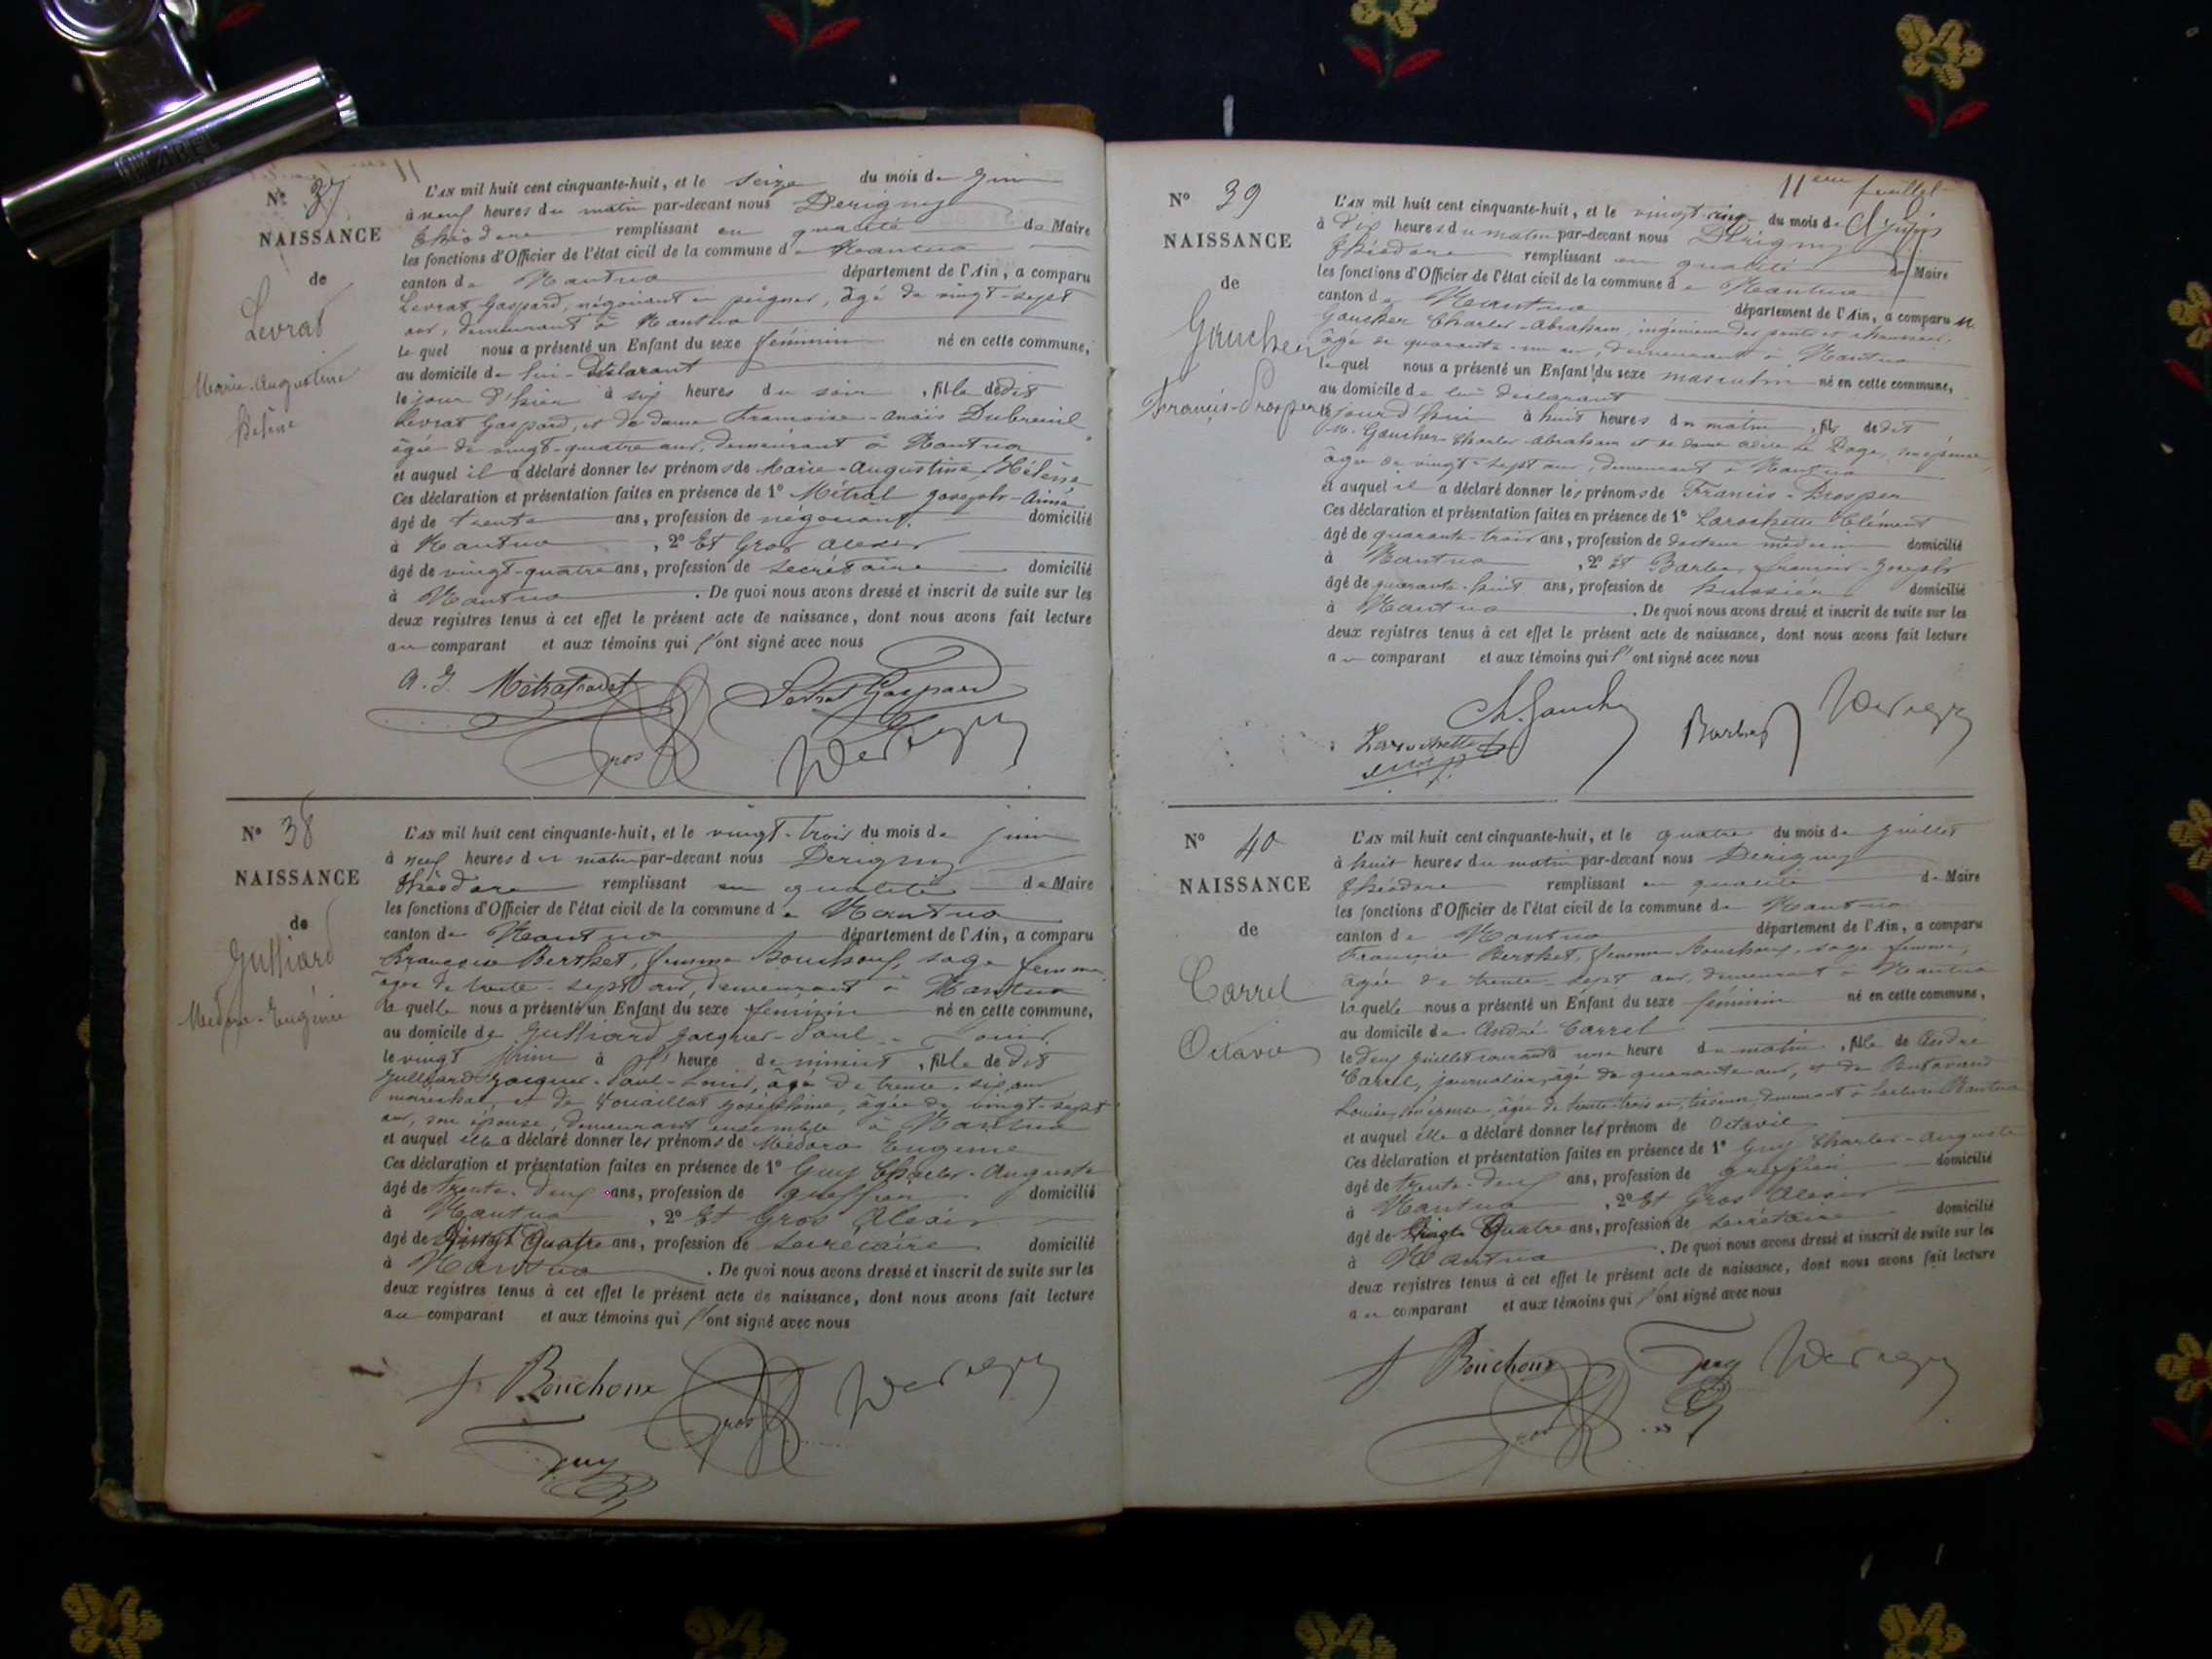 N° 37
NAISSANCE
de
Levrat
Marie-Augustine
Hélène
L'AN mil huit cent cinquante-huit, et le seize du mois de Juin
à neuf heures du matin par-devant nous Derigny
Théodore remplissant en qualité de Maire
les fonctions d'Officier de l'état civil de la commune de Nantua
canton de Nantua département de l'Ain, a comparu
Levrat Gaspard, négociant en peignes, âgé de vingt-sept
ans, demeurant à Nantua
lequel nous a présenté un Enfant du sexe féminin né en cette commune,
au domicile de lui-déclarant
le jour d'hier à six heures du soir, fille dudit
Levrat Gaspard, et de dame Françoise-Anaïs Dubreuil
âgée de vingt-quatre ans, demeurant à Nantua
et auquel il a déclaré donner les prénoms de Marie-Augustine Hélène
Ces déclaration et présentation faites en présence de 1° Métral Joseph-Aimé
âgé de trente ans, profession de négociant domicilié
à Nantua, 2° Et Gros Alexis
âgé de vingt-quatre ans, profession de secrétaire domicilié
à Nantua. De quoi nous avons dressé et inscrit de suite sur les
deux registres tenus à cet effet le présent acte de naissance, dont nous avons fait lecture
au comparant et aux témoins qui l'ont signé avec nous
A. J. Levrat Gaspard
Gros Derigny
N° 38
NAISSANCE
de
Julliard
Médora-Eugénie
L'AN mil huit cent cinquante-huit, et le vingt-trois du mois de juin
à neuf heures du matin par-devant nous Derigny
Théodore remplissant en qualité de Maire
les fonctions d'Officier de l'état civil de la commune de Nantua
canton de Nantua département de l'Ain, a comparu
Françoise Berthet, femme Bouchoux, sage femme
âgée de trente-sept ans, demeurant à Nantua
laquelle nous a présenté un Enfant du sexe féminin né en cette commune,
au domicile de Julliard Jacques-Paul-Louis
le vingt Juin à heure de minuit, fille de dit
Julliard Jacques-Paul-Louis, âgé de trente-six ans
maréchal, et de Joséphine, âgée de vingt-sept
ans, son épouse, demeurant ensemble à Nantua
et auquel elle a déclaré donner les prénoms de Médora Eugénie
Ces déclaration et présentation faites en présence de 1° Guy Charles-Auguste
âgé de trente-deux ans, profession de greffier domicilié
à Nantua, 2° Et Gros Alexis
âgé de Vingt Quatre ans, profession de secrétaire domicilié
à Nantua. De quoi nous avons dressé et inscrit de suite sur les
deux registres tenus à cet effet le présent acte de naissance, dont nous avons fait lecture
au comparant et aux témoins qui l'ont signé avec nous
f Bouchoux Gros Derigny
Guy
11eme feuillet
N° 39
NAISSANCE
de
Gaucher
Francis-Prosper
L'AN mil huit cent cinquante-huit, et le vingt-cinq du mois de Juin
à dix heures du matin par-devant nous Derigny
Théodore remplissant en qualité de Maire
les fonctions d'Officier de l'état civil de la commune de Nantua
canton de Nantua département de l'Ain, a comparu M.
Gaucher Charles-Abraham, ingénieur des ponts et chaussées,
âgé de quarante-un ans, demeurant à Nantua
lequel nous a présenté un Enfant du sexe masculin né en cette commune,
au domicile de lui déclarant
le jourd'hui à huit heures du matin, fils dudit
M. Gaucher Charles-Abraham et de dame Le Page, son épouse,
âgée de vingt-sept ans, demeurant à Nantua
et auquel il a déclaré donner les prénoms de Francis-Prosper
Ces déclaration et présentation faites en présence de 1° Larochette Clément
âgé de quarante-trois ans, profession de docteur médecin domicilié
à Nantua, 2° Et Barbe François-Joseph
âgé de quarante-huit ans, profession de huissier domicilié
à Nantua. De quoi nous avons dressé et inscrit de suite sur les
deux registres tenus à cet effet le présent acte de naissance, dont nous avons fait lecture
au comparant et aux témoins qui l'ont signé avec nous
Ch. Gaucher Derigny
Larochette Barbe
N° 40
NAISSANCE
de
Carrel
Octavie
L'AN mil huit cent cinquante-huit, et le quatre du mois de Juillet
à huit heures du matin par-devant nous Derigny
Théodore remplissant en qualité de Maire
les fonctions d'Officier de l'état civil de la commune de Nantua
canton de Nantua département de l'Ain, a comparu
Françoise Berthet, femme Bouchoux, sage femme,
âgée de trente-sept ans, demeurant à Nantua
laquelle nous a présenté un Enfant du sexe féminin né en cette commune,
au domicile de André Carrel
le deux Juillet courant à une heure du matin, fille de André
Carrel, journalier, âgé de quarante ans, et de
Louise, son épouse, âgée de trente-trois ans, demeurant à Nantua
et auquel elle a déclaré donner les prénom de Octavie
Ces déclaration et présentation faites en présence de 1° Guy Charles-Auguste
âgé de trente-deux ans, profession de greffier domicilié
à Nantua, 2° Et Gros Alexis
âgé de Vingt Quatre ans, profession de secrétaire domicilié
à Nantua. De quoi nous avons dressé et inscrit de suite sur les
deux registres tenus à cet effet le présent acte de naissance, dont nous avons fait lecture
au comparant et aux témoins qui l'ont signé avec nous
f Bouchoux Guy Derigny
Gros